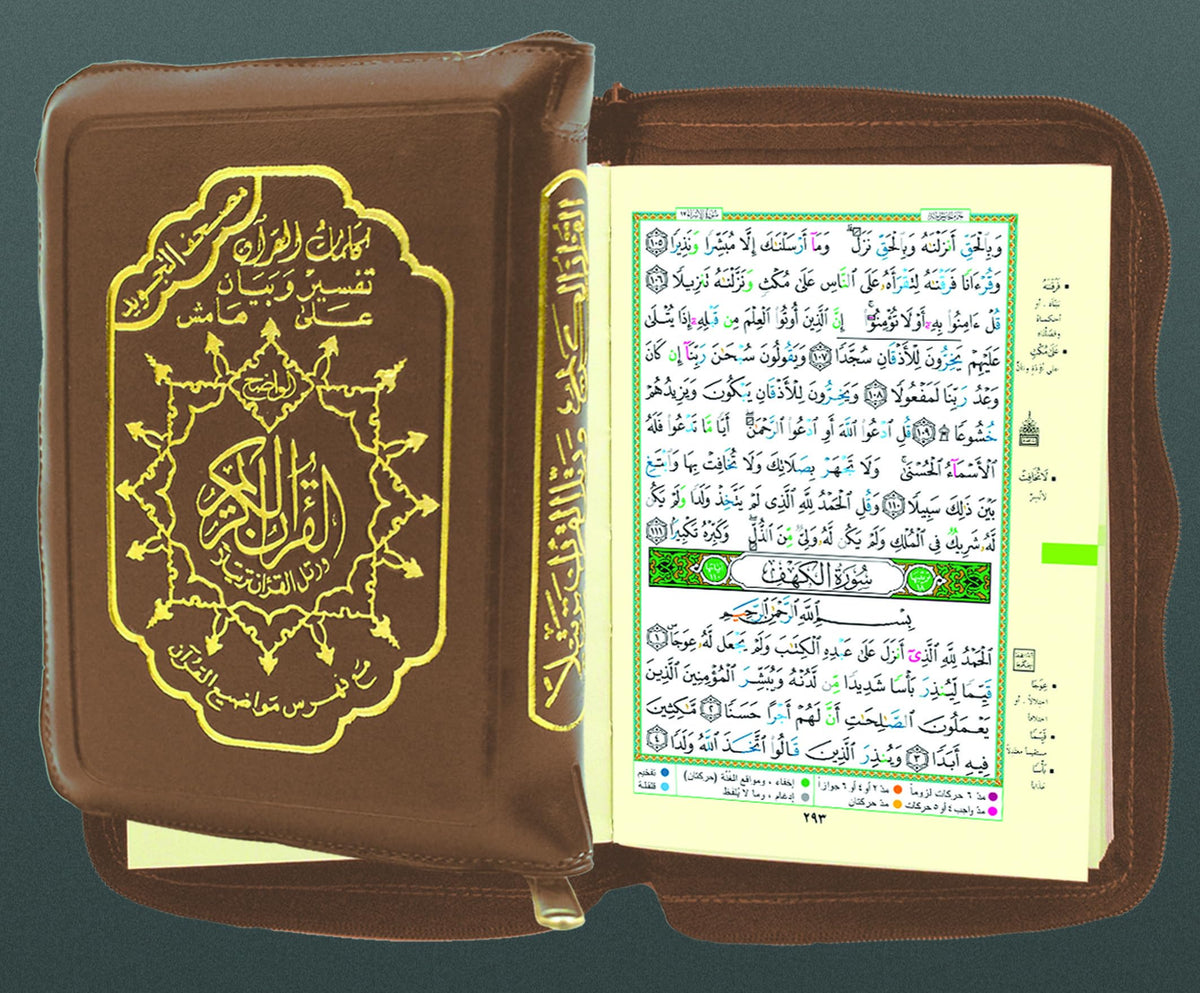 مصحف التجويد
كلمات القرآن
تفسير وبيان
على هامش
الواضح
القرآن الكريم
ورتل القرآن ترتيلا
مع فهرس مواضيع القرآن
سورة الإسراء ١٧
وَبِالْحَقِّ أَنزَلْنَاهُ وَبِالْحَقِّ نَزَلَ ۗ وَمَا أَرْسَلْنَاكَ إِلَّا مُبَشِّرًا وَنَذِيرًا ١٠٥
وَقُرْءَانًا فَرَقْنَاهُ لِتَقْرَأَهُ عَلَى النَّاسِ عَلَىٰ مُكْثٍ وَنَزَّلْنَاهُ تَنزِيلًا ١٠٦
قُلْ ءَامِنُوا بِهِ أَوْ لَا تُؤْمِنُوا ۚ إِنَّ الَّذِينَ أُوتُوا الْعِلْمَ مِن قَبْلِهِ إِذَا يُتْلَىٰ
عَلَيْهِمْ يَخِرُّونَ لِلْأَذْقَانِ سُجَّدًا ١٠٧ وَيَقُولُونَ سُبْحَٰنَ رَبِّنَا إِن كَانَ
وَعْدُ رَبِّنَا لَمَفْعُولًا ١٠٨ وَيَخِرُّونَ لِلْأَذْقَانِ يَبْكُونَ وَيَزِيدُهُمْ
خُشُوعًا ۩ ١٠٩ قُلِ ادْعُوا اللَّهَ أَوِ ادْعُوا الرَّحْمَٰنَ ۖ أَيًّا مَّا تَدْعُوا فَلَهُ
الْأَسْمَاءُ الْحُسْنَىٰ ۚ وَلَا تَجْهَرْ بِصَلَاتِكَ وَلَا تُخَافِتْ بِهَا وَابْتَغِ
بَيْنَ ذَٰلِكَ سَبِيلًا ١١٠ وَقُلِ الْحَمْدُ لِلَّهِ الَّذِي لَمْ يَتَّخِذْ وَلَدًا وَلَمْ يَكُن
لَّهُ شَرِيكٌ فِي الْمُلْكِ وَلَمْ يَكُن لَّهُ وَلِيٌّ مِّنَ الذُّلِّ ۖ وَكَبِّرْهُ تَكْبِيرًا ١١١
سُورَةُ الْكَهْفِ
بِسْمِ اللَّهِ الرَّحْمَٰنِ الرَّحِيمِ
الْحَمْدُ لِلَّهِ الَّذِي أَنزَلَ عَلَىٰ عَبْدِهِ الْكِتَٰبَ وَلَمْ يَجْعَل لَّهُ عِوَجًا ۜ ١
قَيِّمًا لِّيُنذِرَ بَأْسًا شَدِيدًا مِّن لَّدُنْهُ وَيُبَشِّرَ الْمُؤْمِنِينَ الَّذِينَ
يَعْمَلُونَ الصَّٰلِحَٰتِ أَنَّ لَهُمْ أَجْرًا حَسَنًا ٢ مَّٰكِثِينَ
فِيهِ أَبَدًا ٣ وَيُنذِرَ الَّذِينَ قَالُوا اتَّخَذَ اللَّهُ وَلَدًا ٤
فَرَقْنَاهُ
عَلَىٰ مُكْثٍ
لَا تُخَافِتْ
لا تُسِرَّ
عِوَجًا
قَيِّمًا
مستقيما معتدلا
بَأْسًا
عذابا
مد ٦ حركات لزوماً مد ٢ أو ٤ أو ٦ جوازاً
مد واجب ٤ أو ٥ حركات مد حركتان
إخفاء ، ومواقع الغُنَّة (حركتان)
إدغام ، وما لا يُلفظ
تفخيم
قلقلة
٢٩٣